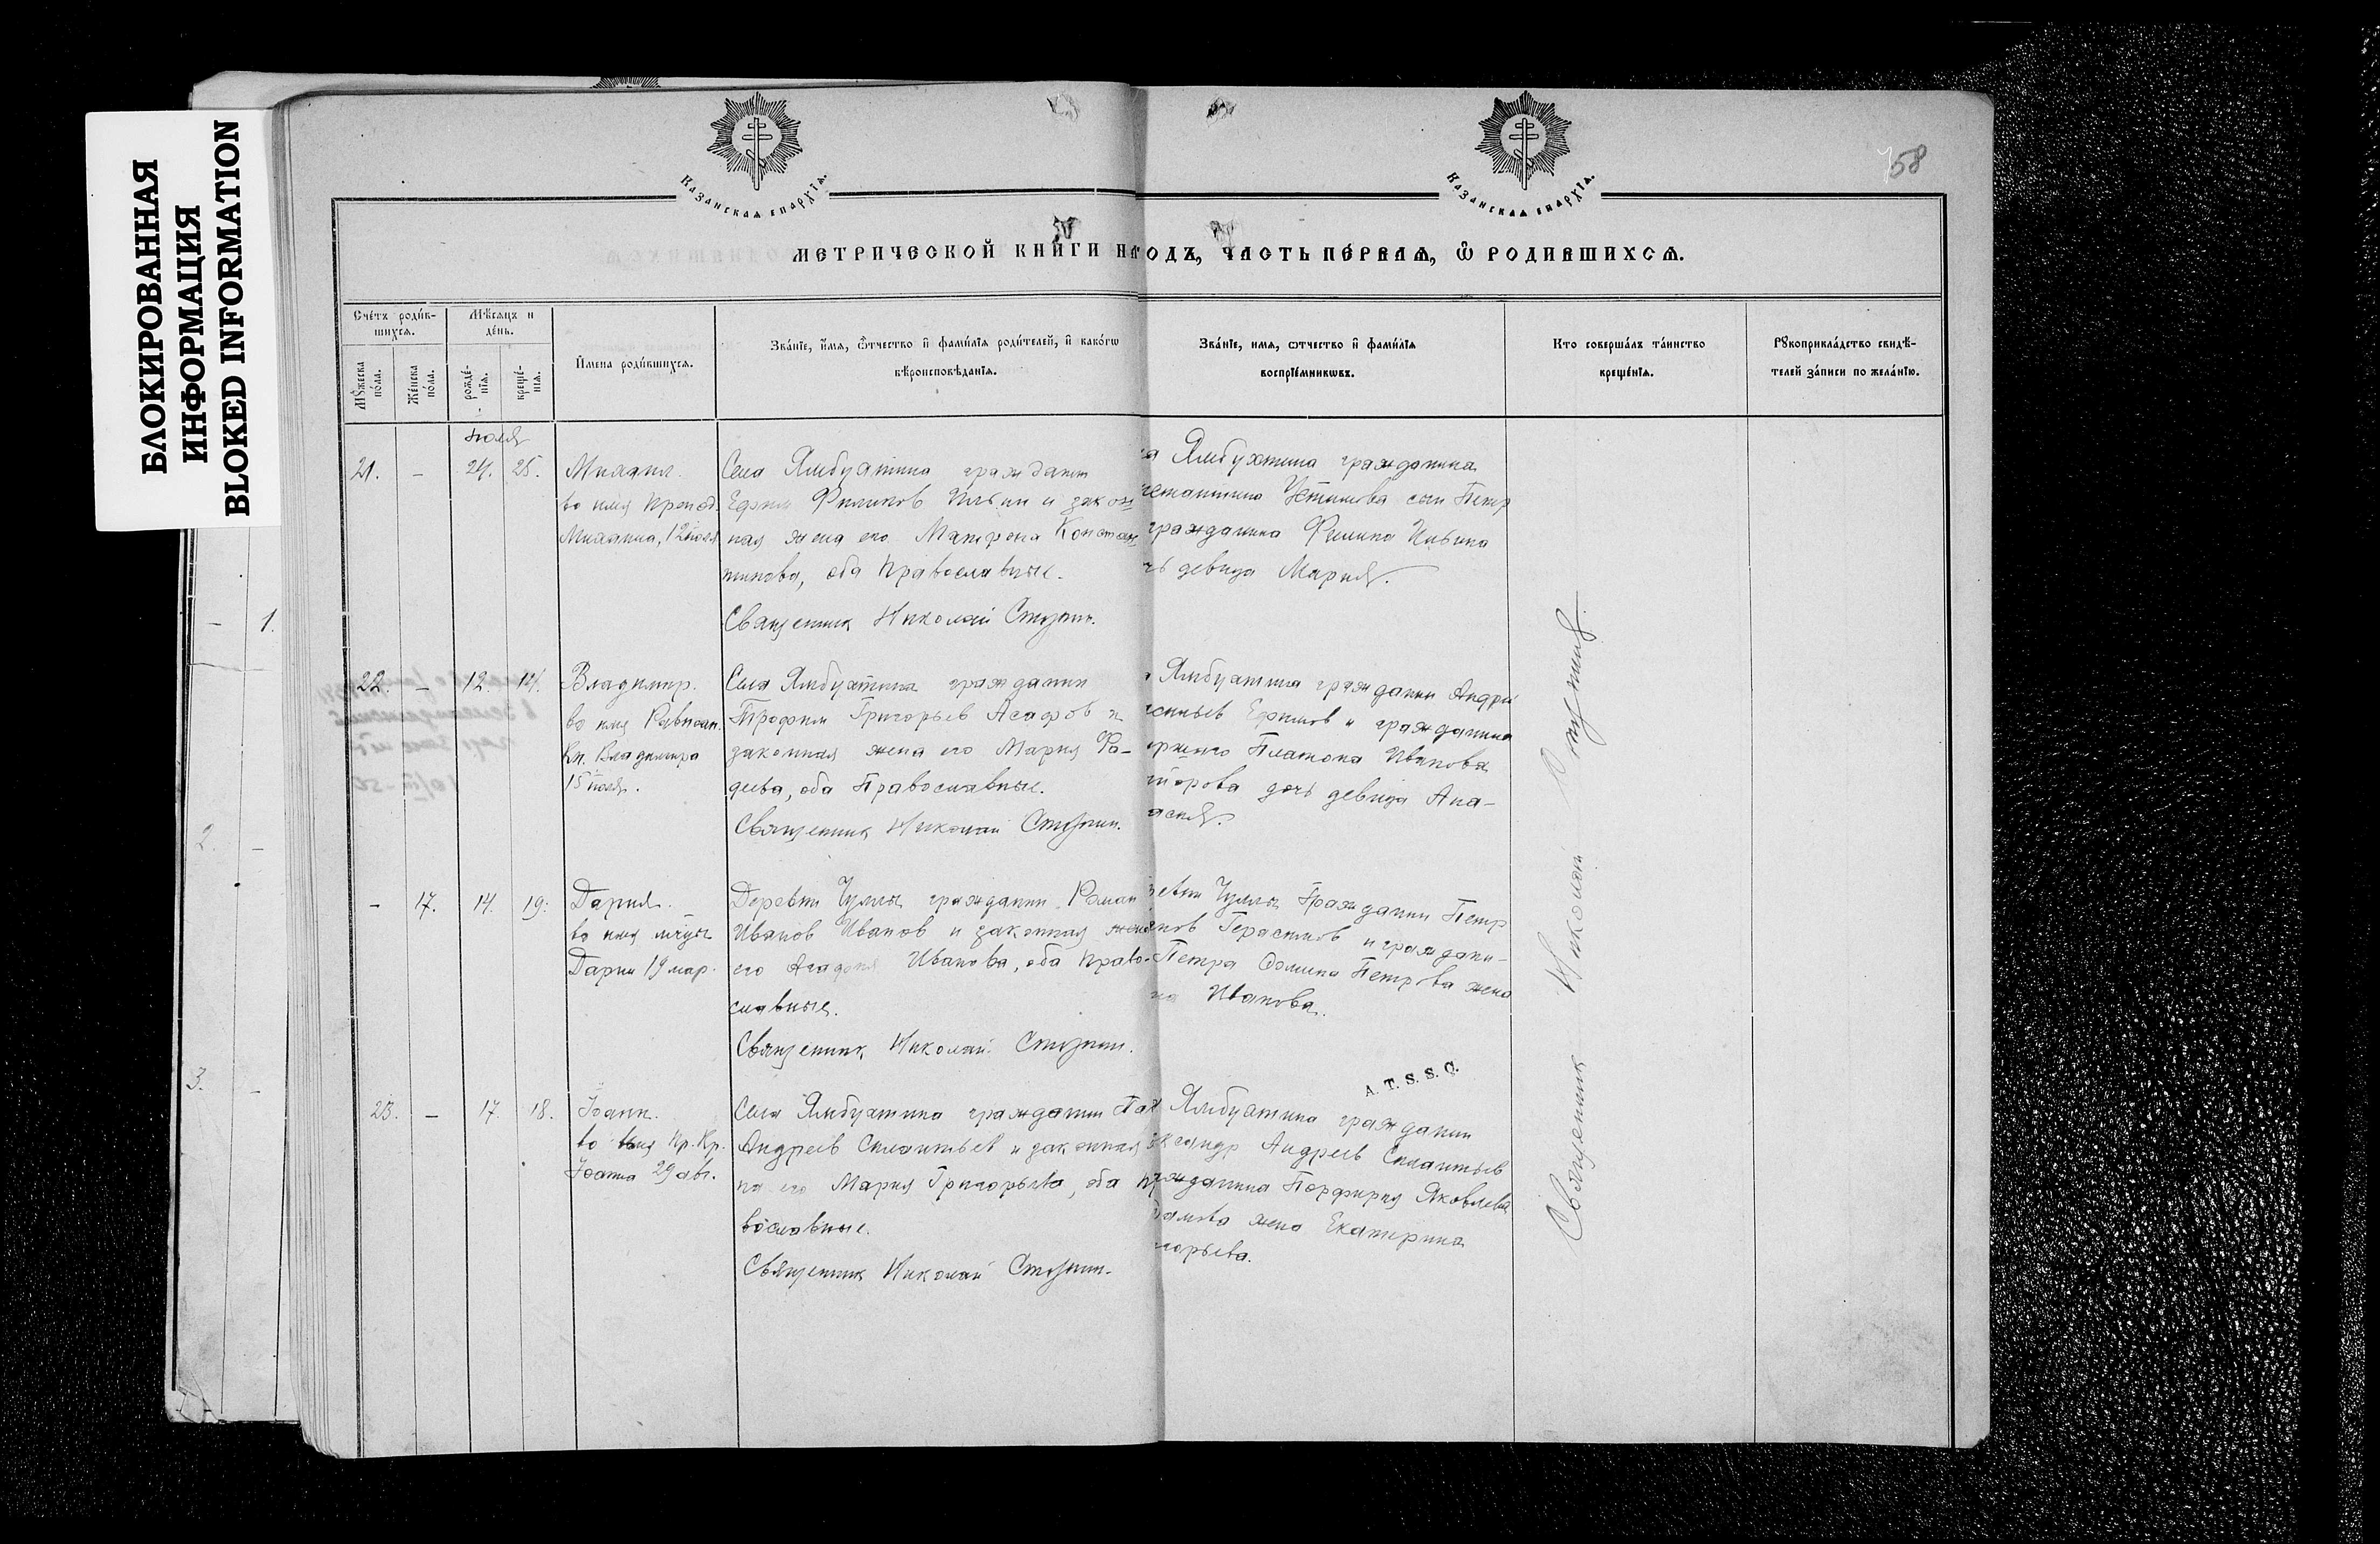 БЛОКИРОВАННАЯ
ИНФОРМАЦИЯ
BLOKED INFORMATION
Казанская епархїя.
Казанская епархїя.
58
МЕТРИЧЕСКОЙ КНИГИ НА
ГОДЪ, ЧАСТЬ ПЕРВАЯ, Ѿ РОДИВШИХСЯ.
Счетъ родив-
шихся.
Мѣсяцъ и
день.
Мужеска
пола.
Женска
пола.
рожде-
нїя.
креще-
нїя.
Имена родившихся.
Званїе, имя, отчество и фамилїя родителей, и какогѡ
вѣроисповѣданїя.
Званїе, имя, ѡтчество и фамилїя
воспрїемникѡвъ.
Кто совершалъ таинство
крещенїя.
Рукоприкладство свидѣ-
телей записи по желанїю.
июля
21. – 24. 25.
Михаил.
во имя препод.
Михаила, 12 июля
Села Ямбухтина гражданин
Ефим Филипов Ильин и закон
ная жена его Матрона Констан
тинова, оба Православные.
Священник Николай
Ямбухтина гражданина
Устинова сын Петр
гражданина Филипа Ильина
девица Мария.
22. – 12. 14.
Владимир.
во имя Равноап.
Кн. Владимира
15 июля.
Села Ямбухтина гражданин
Трофим Григорьев Асафов и
законная жена его Мария Фа-
деева, оба Православные.
Священник Николай
Ямбухтина гражданин Андрей
Ефимов и гражданина
Платона Иванова
дочь девица Ана-
– 17. 14. 19.
Дария.
во имя мчцы
Дарии 19 мар.
Деревни Чулпа гражданин Роман
Иванов Иванов и законная жена
его Иванова, оба право-
славные.
Священник Николай
Чулпа Гражданин Петр
Герасимов и граждани-
Петра Петрова жена
Иванова.
A. T. S. S. Q.
23. – 17. 18.
Иоанн.
во имя Пр. Кр.
Иоанна 29 авг.
Села Ямбухтина гражданин
Андреев Силантьев и законная
на его Мария Григорьева, оба пр
вославные.
Священник Николай
Ямбухтина гражданин
Андреев Силантьев
гражданина Порфирия Яковлева
жена Екатерина
Священник Николай
1.
2. –
3. –